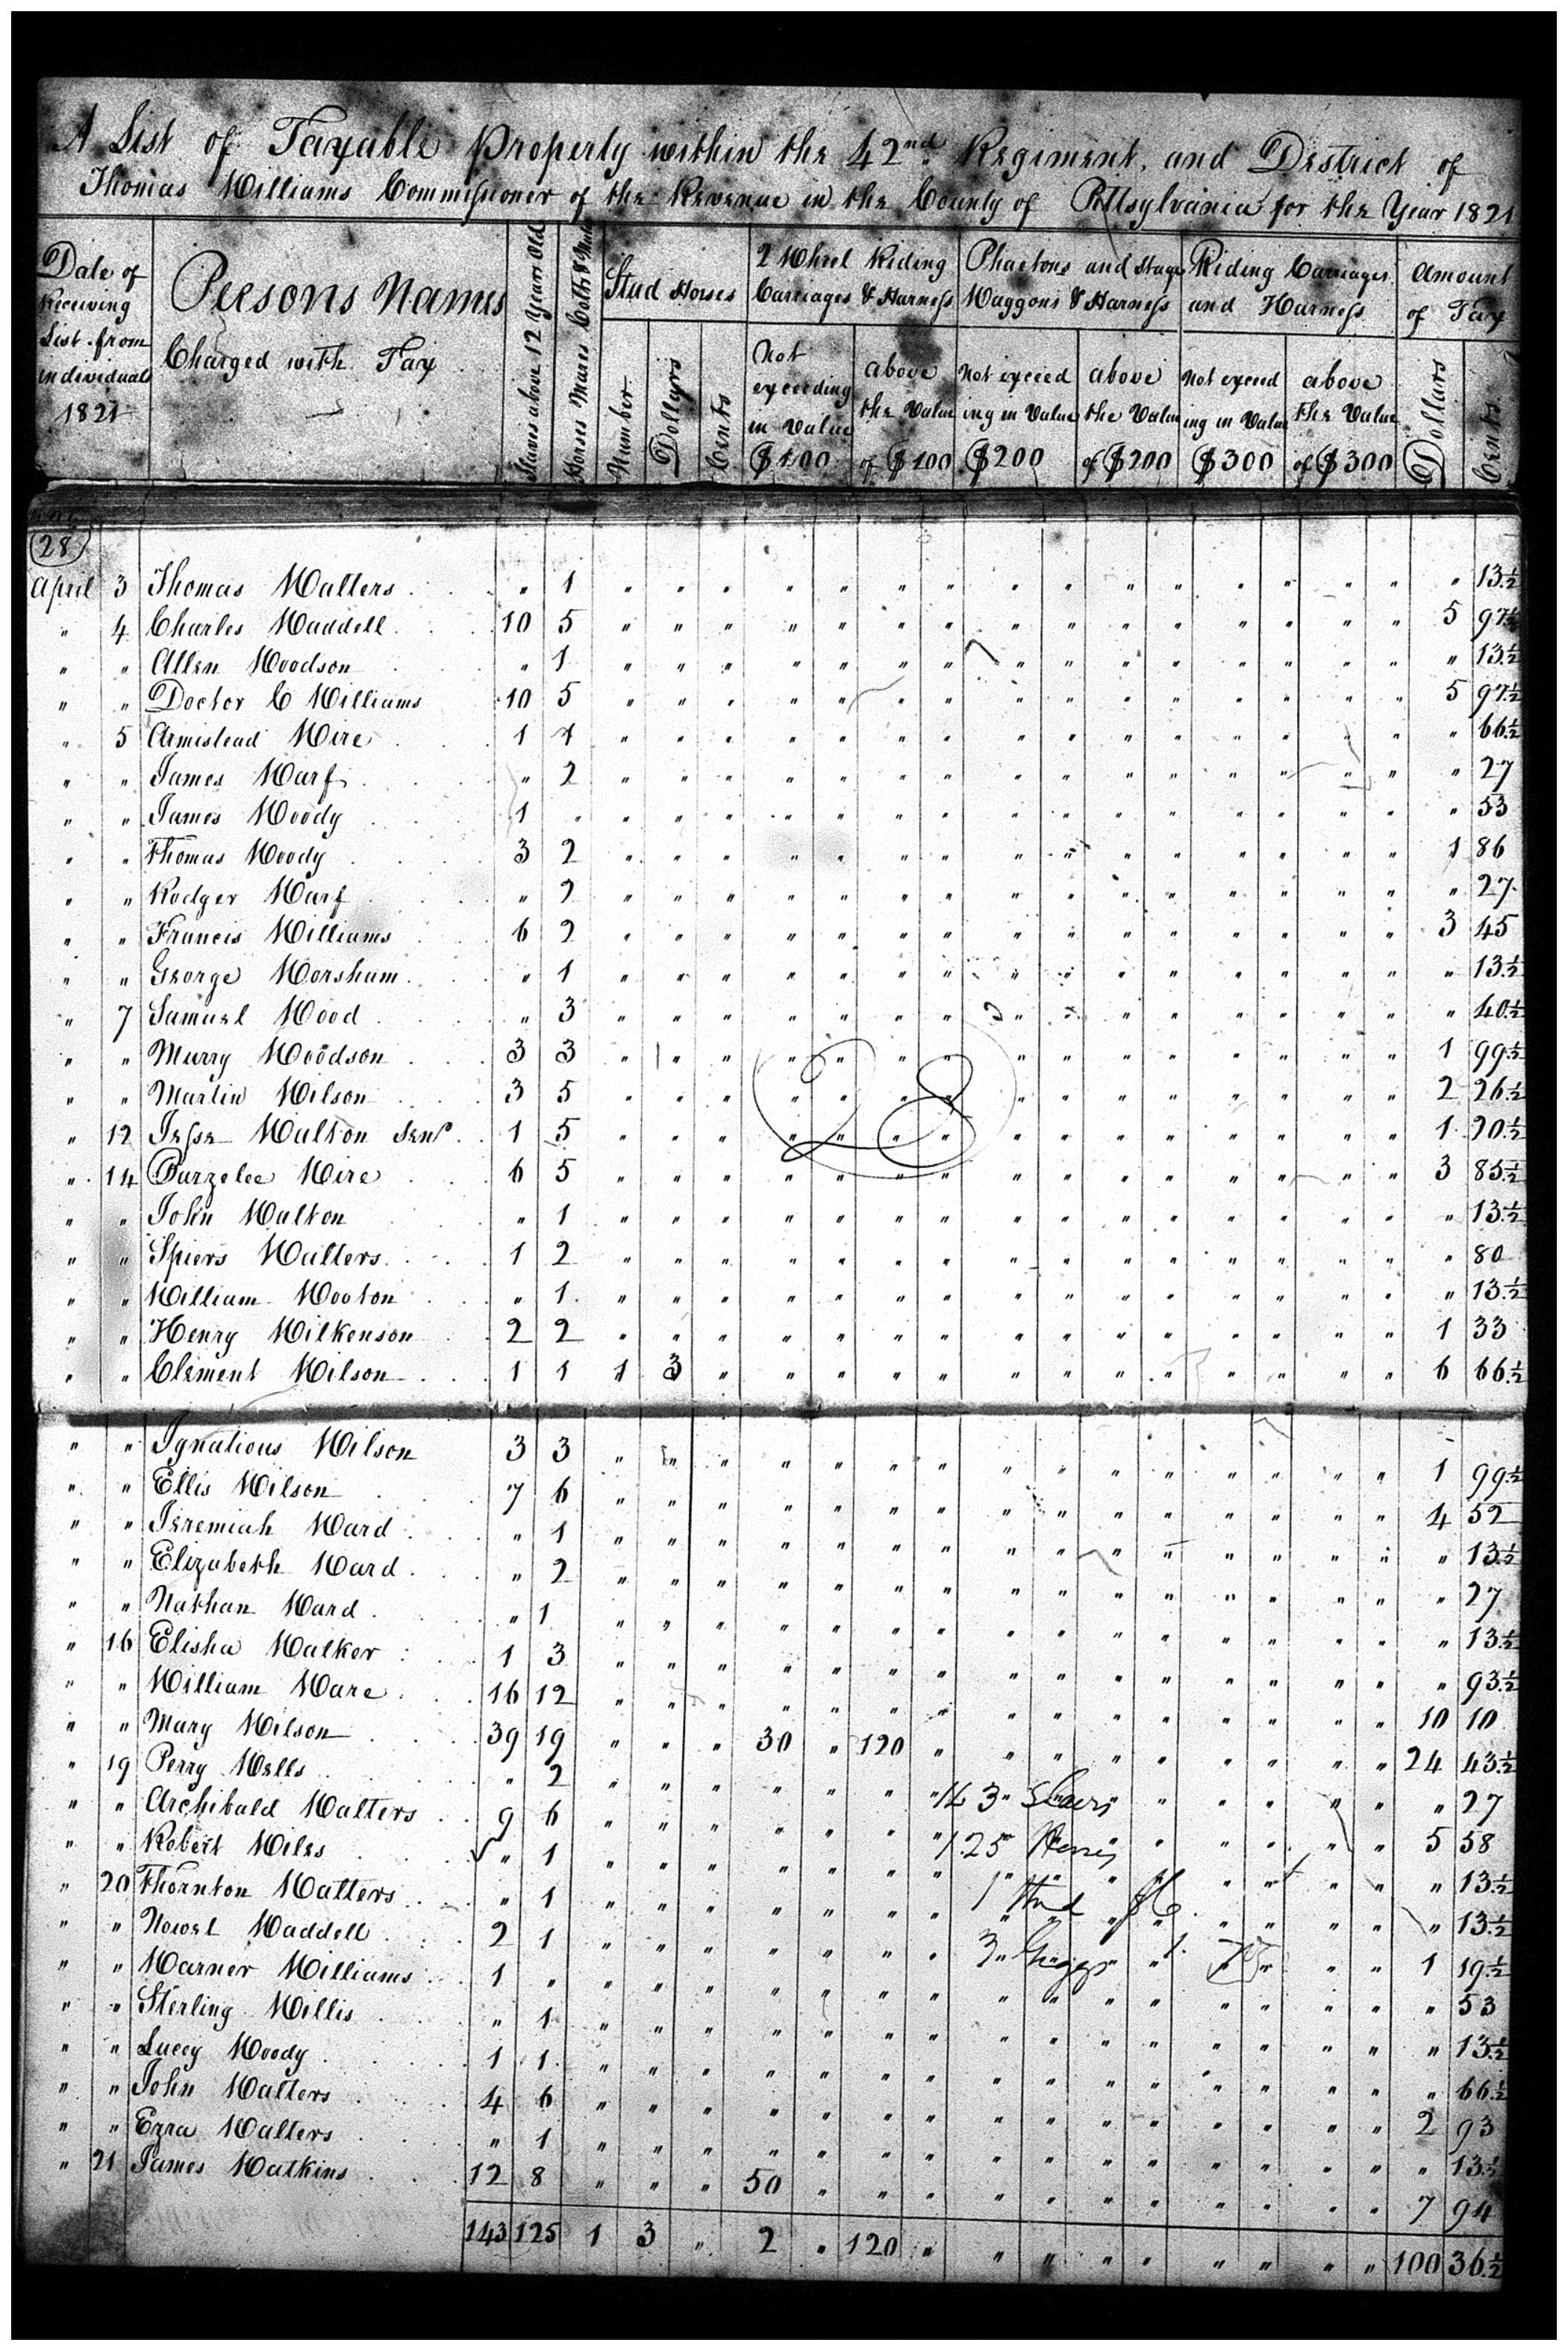 A List of Taxable Property within the 42nd Regiment, and District of
Thomas Williams Commissioner of the Revenue in the County of Pittsylvania for the Year 1821
Date of Receiving List from individuals 1821
Persons Names Charged with Tax
Slaves above 12 Years Old
Horses Mares Colts & Mules
Stud Horses
Number
Dollars
Cents
2 Wheel Riding Carriages & Harness
Not exceeding in Value $100
above the Value of $100
Phaetons and Stage Waggons & Harness
Not exceeding in Value $200
above the Value of $200
Riding Carriages and Harness
Not exceeding in Value $300
above the Value of $300
Amount of Tax
Dollars
Cents
28
April 3 Thomas Walters " 1 " 13½
" 4 Charles Waddell 10 5 5 97½
" " Allen Woodson " 1 " 13½
" " Doctor C Williams 10 5 5 97½
" 5 Armistead Wire 1 1 " 66½
" " James Warf " 2 " 27
" " James Woody 1 " " 53
" " Thomas Woody 3 2 1 86
" " Rodger Warf " 2 " 27
" " Francis Williams 6 2 3 45
" " George Worsham " 1 " 13½
" 7 Samuel Wood " 3 " 40½
" " Murry Woodson 3 3 1 99½
" " Martin Wilson 3 5 2 26½
" 12 Jesse Walton Senr 1 5 1 20½
" 14 Burzelee Wire 6 5 3 85½
" " John Walton " 1 " 13½
" " Spiers Walters 1 2 " 80
" " William Wooton " 1 " 13½
" " Henry Wilkenson 2 2 1 33
" " Clement Wilson 1 1 1 3 " 6 66½
28
" " Ignatious Wilson 3 3 1 99½
" " Ellis Wilson 7 6 4 52
" " Jeremiah Ward " 1 " 13½
" " Elizabeth Ward " 2 " 27
" " Nathan Ward " 1 " 13½
" 16 Elisha Walker 1 3 " 93½
" " William Ware 16 12 10 10
" " Mary Wilson 39 19 " " " 30 " 120 " 24 43½
" 19 Perry Wells " 2 " 27
" " Archibald Walters 9 6 5 58
" " Robert Wiles " 1 " 13½
" 20 Thornton Watters " 1 " 13½
" " Nowel Waddell 2 1 1 19½
" " Warner Williams 1 " " 53
" " Sterling Willis " 1 " 13½
" " Lucey Woody 1 1 " 66½
" " John Walters 4 6 2 93
" " Ezra Walters " 1 " 13½
" 21 James Watkins 12 8 " " " 50 " 7 94
143 125 1 3 " 2 " 120 " 100 36½
143
125
1 Stud
3